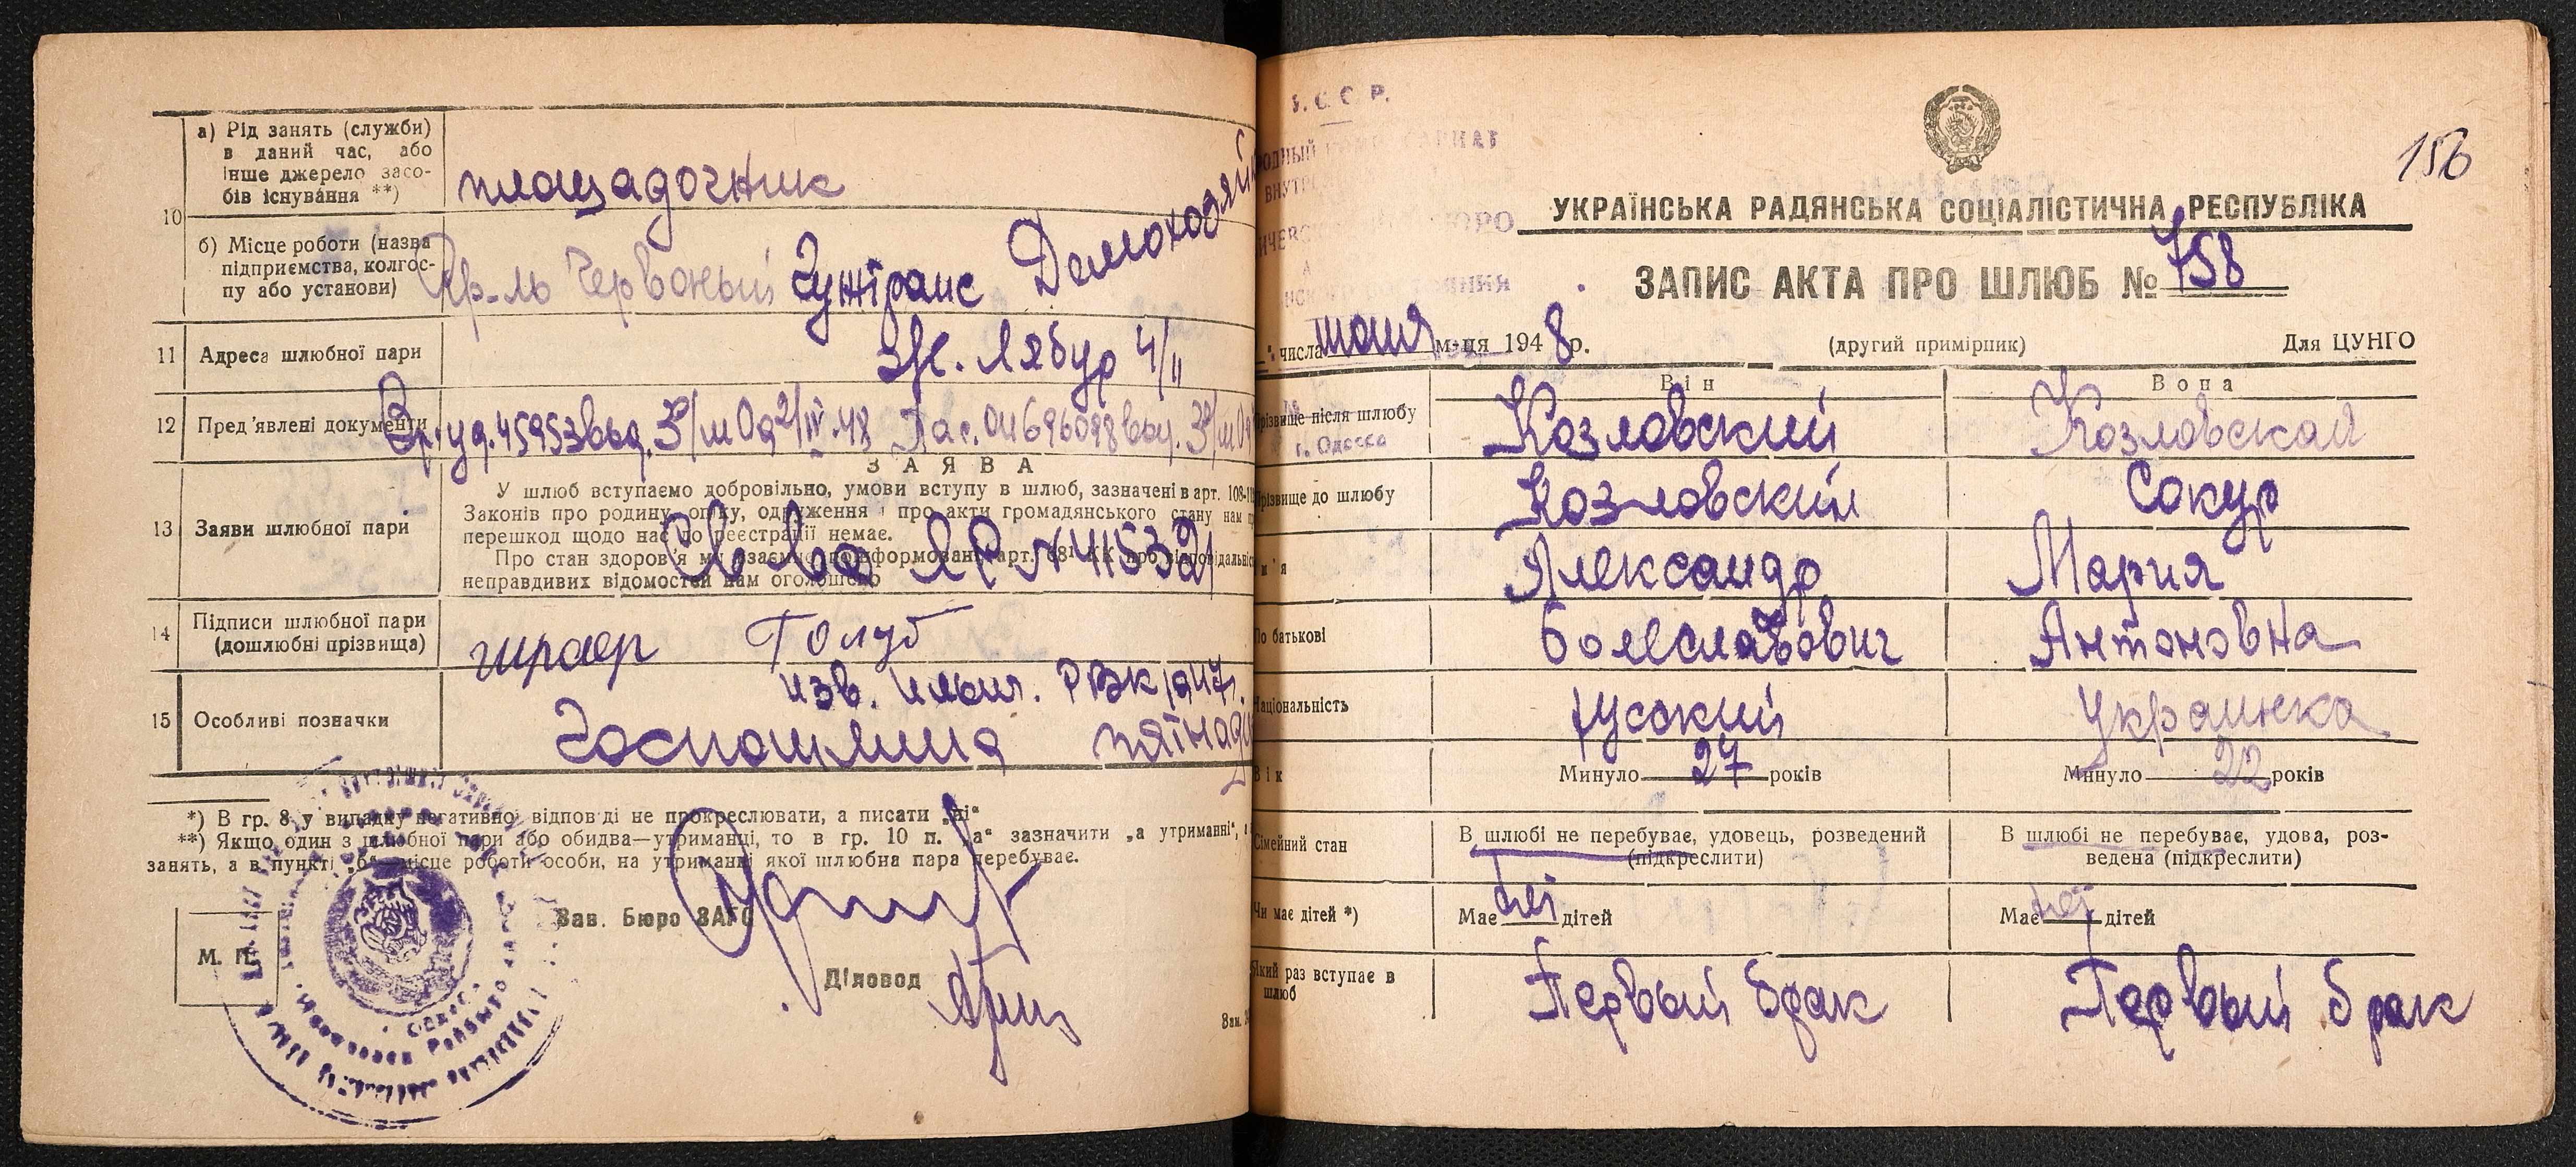 10
а) Рід занять (служби)
в даний час, або
інше джерело засо-
бів існування **)
площадочник
б) Місце роботи (назва
підприємства, колгос-
пу або установи)
Кр-ль Червоный Гужтранс Домохозяй
11 Адреса шлюбної пари
4/11
12 Пред'явлені документи
Вр. уд. 45953 выд. 3 о/м Од 2/IV 48 Пас. 696098 выд. 3 о/м
13 Заяви шлюбної пари
ЗАЯВА
У шлюб вступаємо добровільно, умови вступу в шлюб, зазначені в арт. 108-1
Законів про родину, опіку, одруження і про акти громадянського стану нам
перешкод щодо нас до реєстрації немає.
Про стан здоров'я ми взаємно поінформовані арт. КК про відповідальніс
неправдивих відомостей нам оголошено
Св-во ЯР №
14 Підписи шлюбної пари
(дошлюбні прізвища)
Голуб
15 Особливі позначки
изв. РВК 1947г.
Госпошлина
*) В гр. 8 у випадку негативної відповіді не прокреслювати, а писати „ні“
**) Якщо один з шлюбної пари або обидва—утриманці, то в гр. 10 п. „а“ зазначити „а утриманні“,
занять, а в пункті „б“—місце роботи особи, на утриманні якої шлюбна пара перебуває.
М. П.
Зав. Бюро ЗАГС
Діловод
Зам.
У. С. С. Р.
г. Одесса
156
УКРАЇНСЬКА РАДЯНСЬКА СОЦІАЛІСТИЧНА РЕСПУБЛІКА
ЗАПИС АКТА ПРО ШЛЮБ № 758
“ числа м-ця 1948р. (другий примірник) Для ЦУНГО
Він Вона
Прізвище після шлюбу Козловский Козловская
Прізвище до шлюбу Козловский Сокур
м'я Александр Мария
По батькові Болеславович Антоновна
Національність русский Украинка
Вік Минуло 27 років Минуло 22 років
Сімейний стан
В шлюбі не перебуває, удовець, розведений
(підкреслити)
В шлюбі не перебуває, удова, роз-
ведена (підкреслити)
Чи має дітей *) Має ні дітей Має ні дітей
Який раз вступає в
шлюб
Первый брак Первый брак